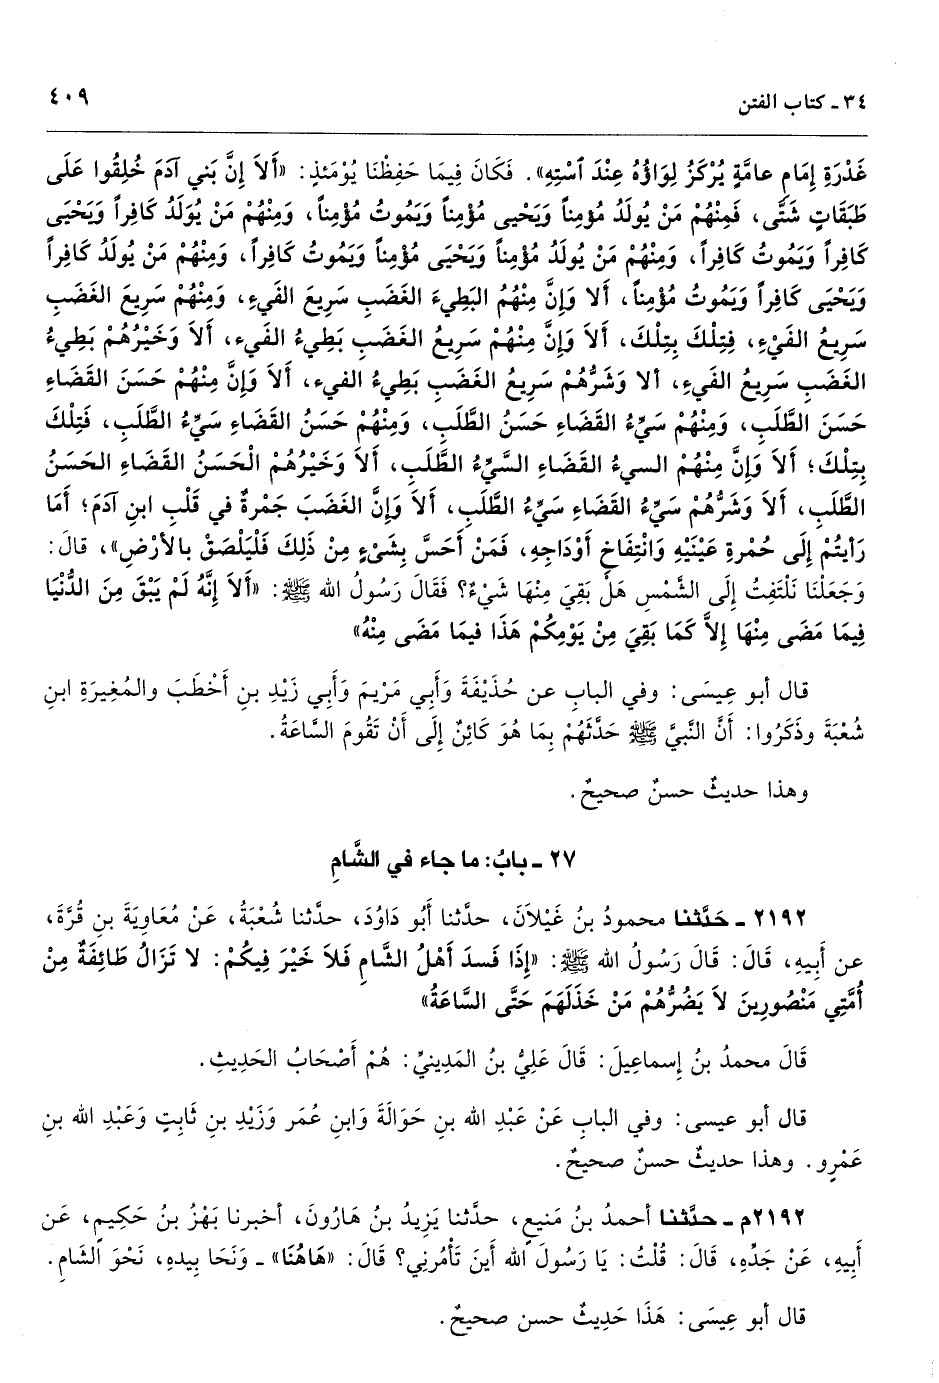 ٣٤ ـ كتاب الفتن
٤٠٩
غَدْرَةِ إمَامِ عامَّةٍ يُرْكَزُ لِوَاؤُهُ عِنْدَ ٱسْتِهِ». فَكَانَ فِيمَا حَفِظْنَا يُوْمَئذٍ: «أَلاَ إنَّ بَني آدَمَ خُلِقُوا عَلَى
طَبَقَاتٍ شَتَّى، فَمِنْهُمْ مَنْ يُولَدُ مُؤْمِناً وَيَحْيى مُؤْمِناً وَيَمُوتُ مُؤْمِناً، وَمِنْهُمْ مَنْ يُوَلَدُ كَافِراً وَيَحْيَى
كَافِراً وَيَمُوتُ كَافِراً، وَمِنْهُمْ مَنْ يُولَدُ مُؤْمِناً وَيَحْيَى مُؤْمِناً وَيَمُوتُ كَافِراً، وَمِنْهُمْ مَنْ يُولَدُ كَافِراً
وَيَحْيَى كَافِراً وَيَمُوتُ مُؤْمِناً، أَلا وَإنَّ مِنْهُمُ البَطِيءَ الغَضَبِ سَرِيعَ الفَيءِ، وَمِنْهُمْ سَرِيعَ الغَضَبِ
سَرِيعُ الفَيْءِ، فَتِلْكَ بِتِلْكَ، أَلاَ وَإنَّ مِنْهُمْ سَرِيعُ الغَضَبِ بَطِيءُ الفَيء، أَلاَ وَخَيْرُهُمْ بَطِيءُ
الغَضَبِ سَرِيعُ الفَيءِ، أَلا وَشَرُّهُمْ سَرِيعُ الغَضَبِ بَطِيءُ الفيء، أَلاَ وَإنَّ مِنْهُمْ حَسَنَ القَضَاءِ
حَسَنَ الطَّلَبِ، وَمِنْهُمْ سَيءُ القَضَاءِ حَسَنُ الطَّلَبِ، وَمِنْهُمْ حَسَنُ القَضَاءِ سَيّءُ الطَّلَبِ، فَتِلْكَ
بِتِلْكَ؛ أَلاَ وَإنَّ مِنْهُمْ السيءُ القَضَاءِ السَّيّءُ الطَّلَبِ، أَلاَ وَخَيْرُهُمْ الْحَسَنُ القَضَاءِ الحَسَنُ
الطَّلَبِ، أَلاَ وَشَرُّهُمْ سَيّءُ القَضَاءِ سَيّءُ الطَّلَبِ، أَلاَ وَإنَّ الغَضَبَ جَمْرةٌ في قَلْبِ ابنِ آدَمَ؛ أَمَا
رَأَيتُمْ إلَى حُمْرةِ عَيْنَيْهِ وَانْتِفَاخِ أَوْدَاجِهِ، فَمَنْ أَحَسَّ بِشَيْءٍ مِنْ ذَلِكَ فَلْيَلْصَقْ بالأرْضِ»، قالَ:
وَجَعَلْنَا نَلْتَفِتُ إلَى الشَّمْسِ هَلْ بَقِيَ مِنْهَا شَيْءٌ؟ فَقَالَ رَسُولُ الله ﷺ: «أَلاَ إنَّهُ لَمْ يَبْقَ مِنَ الدُّنْيَا
فِيمَا مَضَى مِنْهَا إلاَّ كَمَا بَقِيَ مِنْ يَوْمِكُمْ هَذَا فيمَا مَضَى مِنْهُ»
قال أبو عِيسَى: وفي البابِ عن حُذَيْفَةَ وَأَبِي مَرْيَمَ وَأَبِي زَيْدِ بنِ أَخْطَبَ والمُغِيرَةِ ابنِ
شُعْبَةَ وذَكَرُوا: أَنَّ النَّبيَّ ﷺ حَدَّثَهُمْ بِمَا هُوَ كَائِنٌ إلَى أَنْ تَقُومَ السَّاعَةُ.
وهذا حديثٌ حسنٌ صحيحٌ.
٢٧ ـ بابُ: ما جاء في الشَّامِ
٢١٩٢ ـ حَدَّثنا محمودُ بنُ غَيْلاَنَ، حدَّثنا أَبُو دَاوُدَ، حدَّثنا شُعْبَةُ، عَنْ مُعَاوِيَةَ بنِ قُرَّةَ،
عن أَبِيهِ، قَالَ: قَالَ رَسُولُ الله ﷺ: «إذَا فَسدَ أَهْلُ الشَّامِ فَلاَ خَيْرَ فِيكُمْ: لا تَزَالُ طَائِفَةٌ مِنْ
أُمَّتِي مَنْصُورِينَ لاَ يَضُرُّهُمْ مَنْ خَذَلَهَمَ حَتَّى السَّاعَةُ»
قَالَ محمدُ بنُ إسماعِيلَ: قَالَ عَلِيُّ بنُ المَدِينيِّ: هُمْ أَصْحَابُ الحَدِيثِ.
قال أبو عيسى: وفي البابِ عَنْ عَبْدِ الله بنِ حَوَالَةَ وَابنِ عُمَر وَزَيْدِ بنِ ثَابتٍ وَعَبْدِ الله بنِ
عَمْرٍو. وهذا حديثٌ حسنٌ صحيحٌ.
٢١٩٢م ـ حدَّثنا أحمدُ بنُ مَنيعٍ، حدَّثنا يَزِيدُ بنُ هَارُونَ، أخبرنا بَهْزُ بنُ حَكِيمٍ، عَن
أَبِيهِ، عَنْ جَدِّهِ، قَالَ: قُلْتُ: يَا رَسُولَ الله أَينَ تَأْمُرنِي؟ قَالَ: «هَاهُنَا» ـ وَنَحَا بِيدِهِ، نَحْوَ الشَّامِ.
قال أبو عِيسَى: هَذَا حَدِيثٌ حسن صحيحٌ.